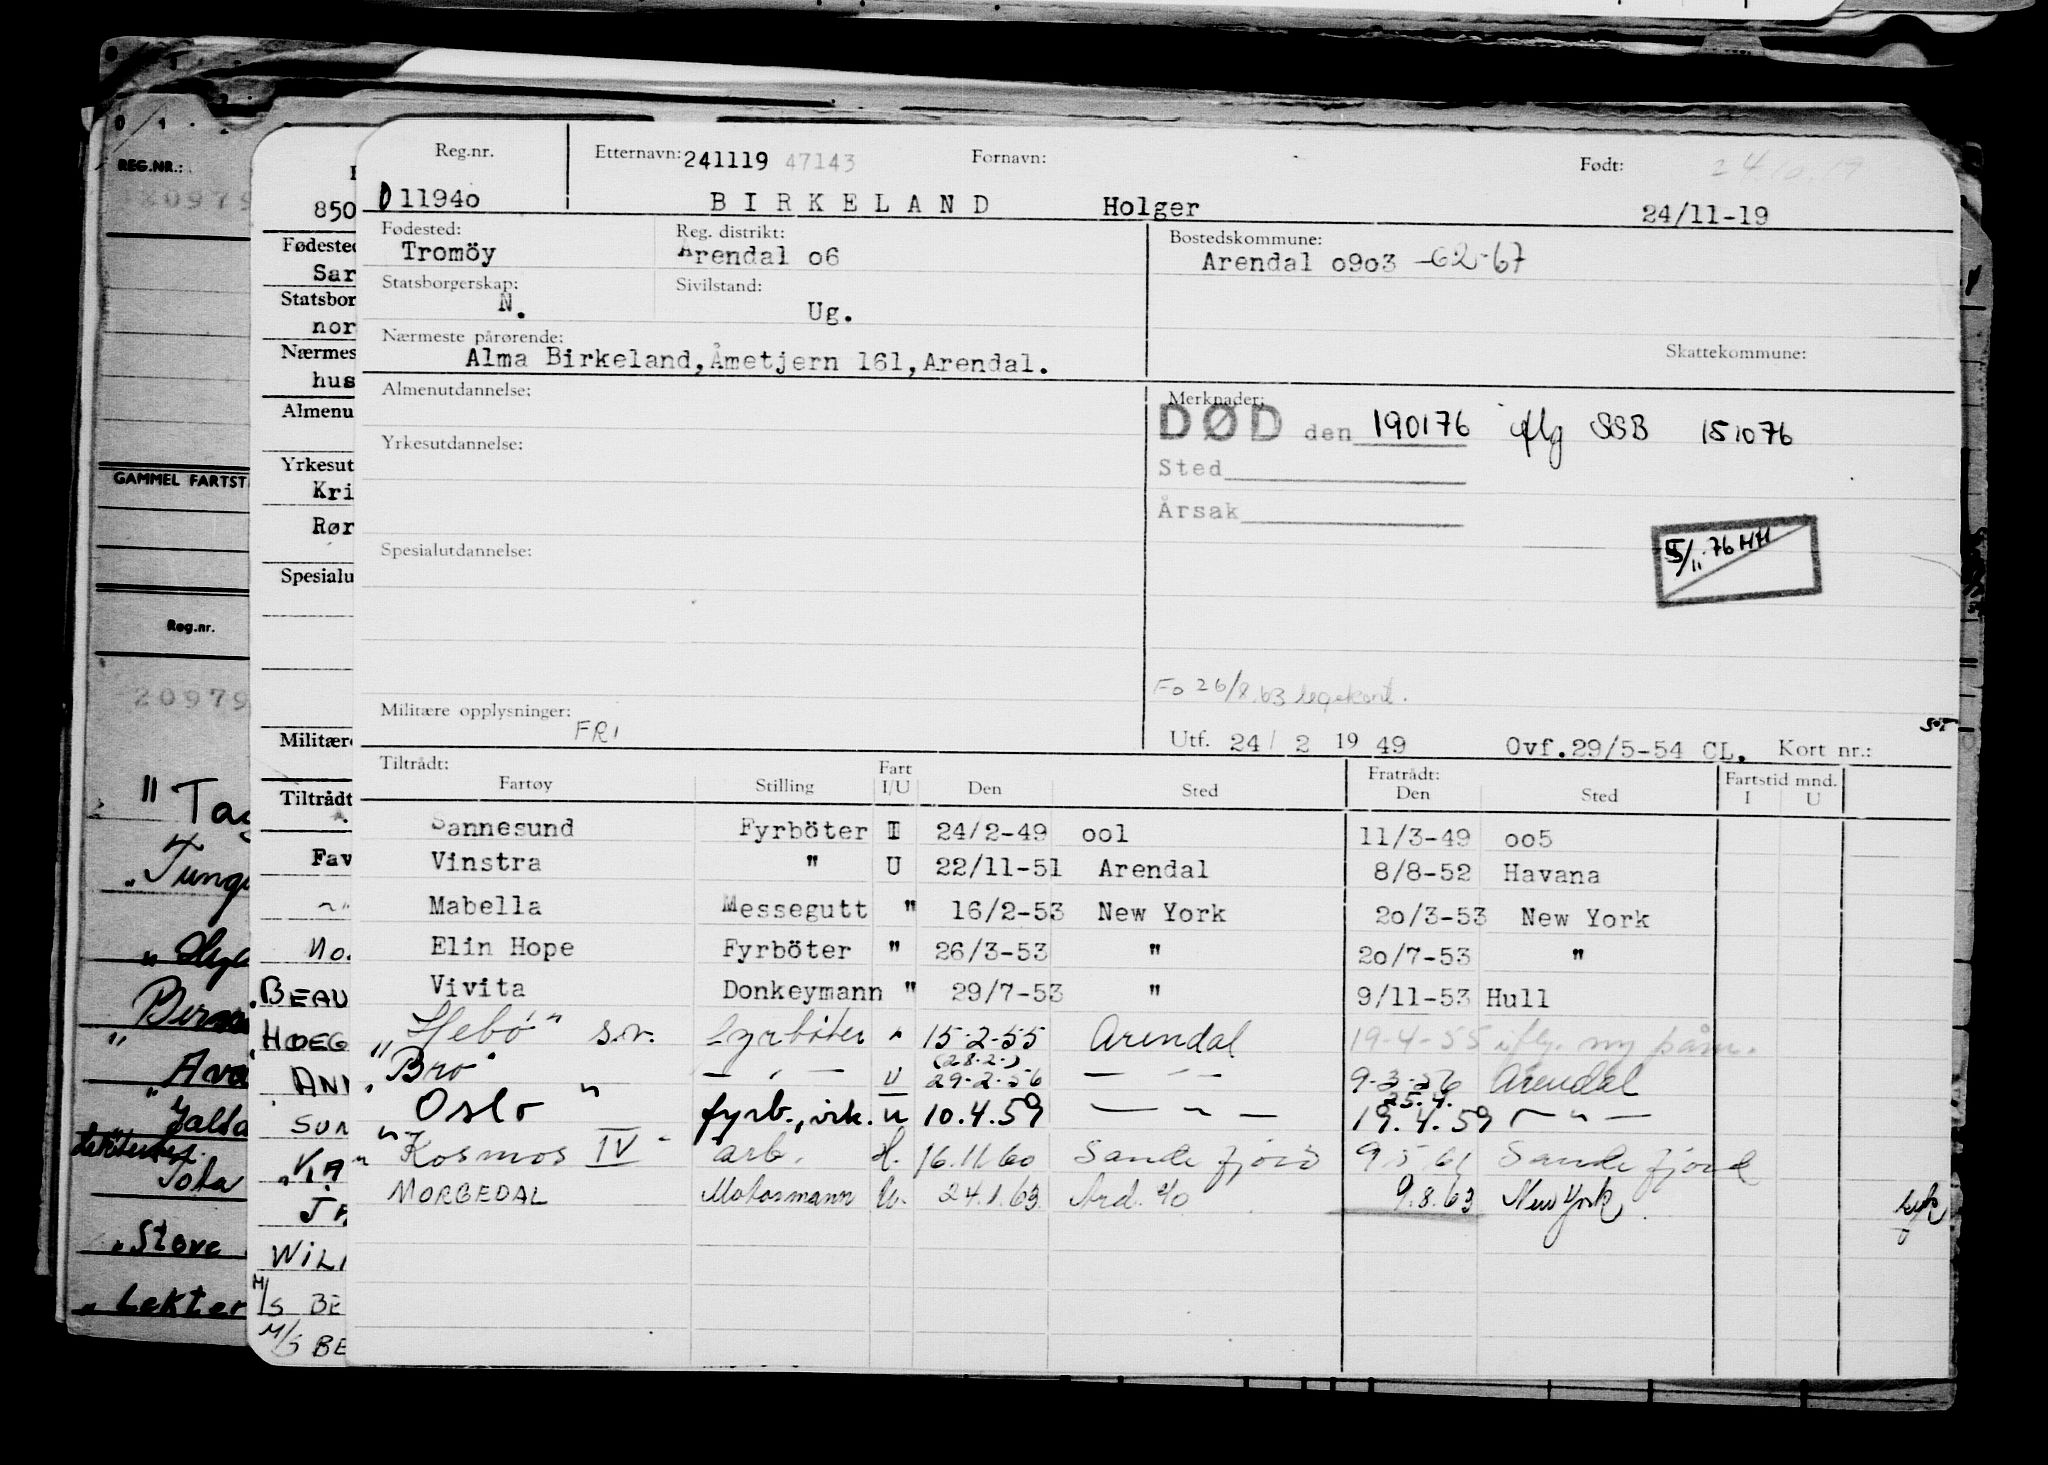 Reg.nr. Etternavn: 241119 47143 Fornavn: Født: 24.10.19
011940 BIRKELAND Holger 24/11-19
Fødested: Tromöy Reg. distrikt: Arendal o6 Bostedskommune: Arendal o9o3 -62-67
Statsborgerskap: N. Sivilstand: Ug.
Nærmeste pårørende: Skattekommune:
Alma Birkeland, Åmetjern 161, Arendal.
Almenutdannelse: Merknader:
DØD den 190176 iflg SSB 151076
Yrkesutdannelse:
Sted
Årsak
5/11-76 HH
Spesialutdannelse:
Fo 26/8.63 legekont.
Militære opplysninger: FRI
Utf. 24/2 1949 Ovf. 29/5-54 CL. Kort nr.:
Tiltrådt: Fart Fratrådt: Fartstid mnd.
Fartøy Stilling I/U Den Sted Den Sted I U
Sannesund Fyrböter 24/2-49 oo1 11/3-49 oo5
Vinstra " U 22/11-51 Arendal 8/8-52 Havana
Mabella Messegutt " 16/2-53 New York 20/3-53 New York
Elin Hope Fyrböter " 26/3-53 " 20/7-53 "
Vivita Donkeymann " 29/7-53 " 9/11-53 Hull
"Hebö" s.v. fyrböter " 15-2-55 Arendal 19-4-55 iflg. ny påm.
"Bro" — " — U (28.2.) 29-2-56 — " — 9-3-56 Arendal
"Oslo" fyrb., vik. u 10.4.59 — " — 25.4. 19.4.59 — " —
"Kosmos IV" arb. H. 16.11.60 Sandefjord 9.5.61 Sandefjord
MORGEDAL Motormann U. 24.1.63 9.8.63 New York
REG.NR.:
20979
GAMMEL FARTST
Reg.nr.
20979
" Tag
Stove
Lekter
850
Fødested
Sar
Statsbor
nor
Nærmes
hus
Almenu
Yrkesut
Kri
Rør
Spesialu
Militære
Tiltrådt
Fav
No.
BEAU
HOEG
ANN
SUN
WILL
M/S BE
M/S BE